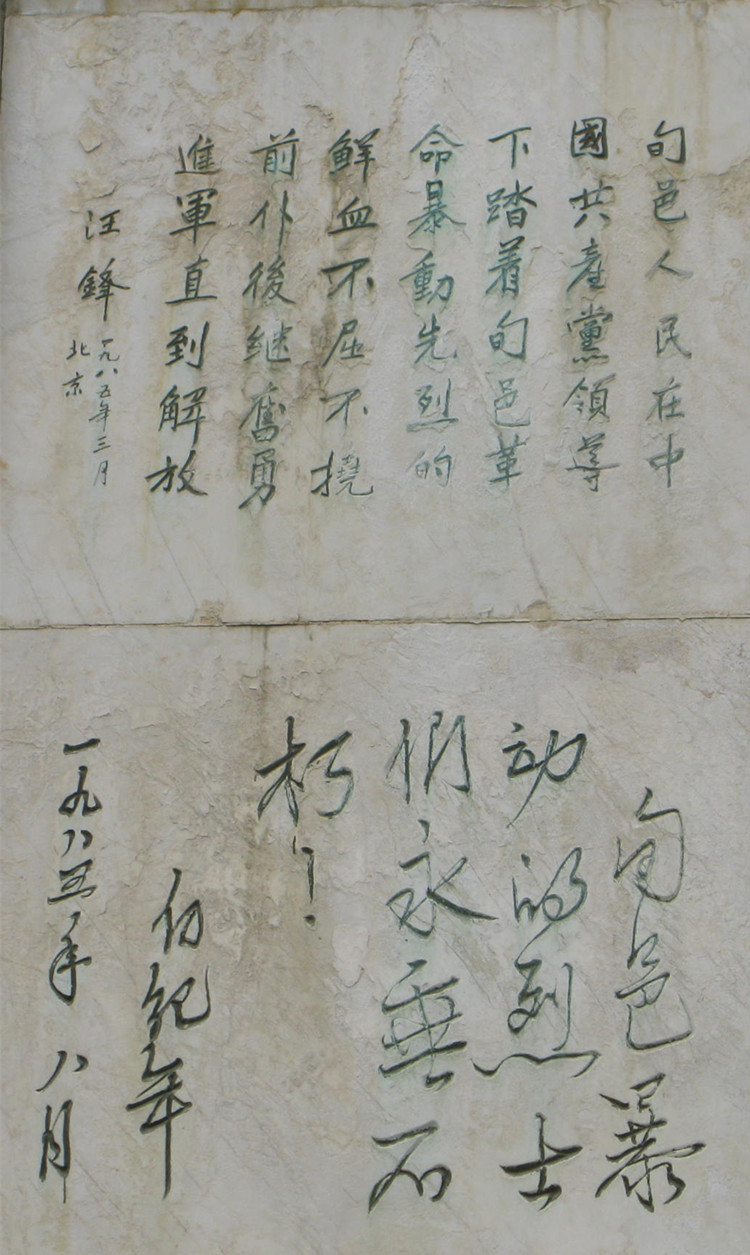 旬邑人民在中
國共產黨領導
下踏着旬邑革
命暴動先烈的
鮮血不屈不撓
前仆後继奮勇
進軍直到解放
汪鋒
一九八五年三月
北京
旬邑暴
动的烈士
們永垂不
朽！
何紀年
一九八五年八月